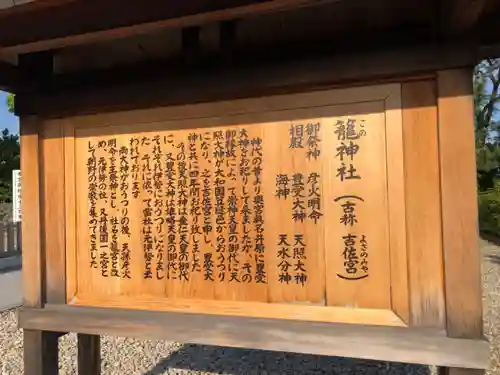 この
籠神社（古称 吉佐宮）
よさのみや
御祭神 彦火明命
相殿 豊受大神 天照大神
海神 天水分神
神代の昔より奥宮眞名井原に豊受
大神をお祀りして来ましたが、その
御縁故によって崇神天皇の御代に天
照大神が大和国笠縫邑からおうつり
になり、之を吉佐宮と申し、豊受大
神と共に四年間お祀り致しました。
その後天照大神は垂仁天皇の御代
に、又豊受大神は雄略天皇の御代に
それぞれ伊勢におうつりになりまし
た。それに依って當社は元伊勢と云
われております
両大神がおうつりの後、天孫彦火
明命を主祭神とし、社名を籠宮と改
め、元伊勢の社、又丹後国一之宮と
して朝野の崇敬を集めてきました